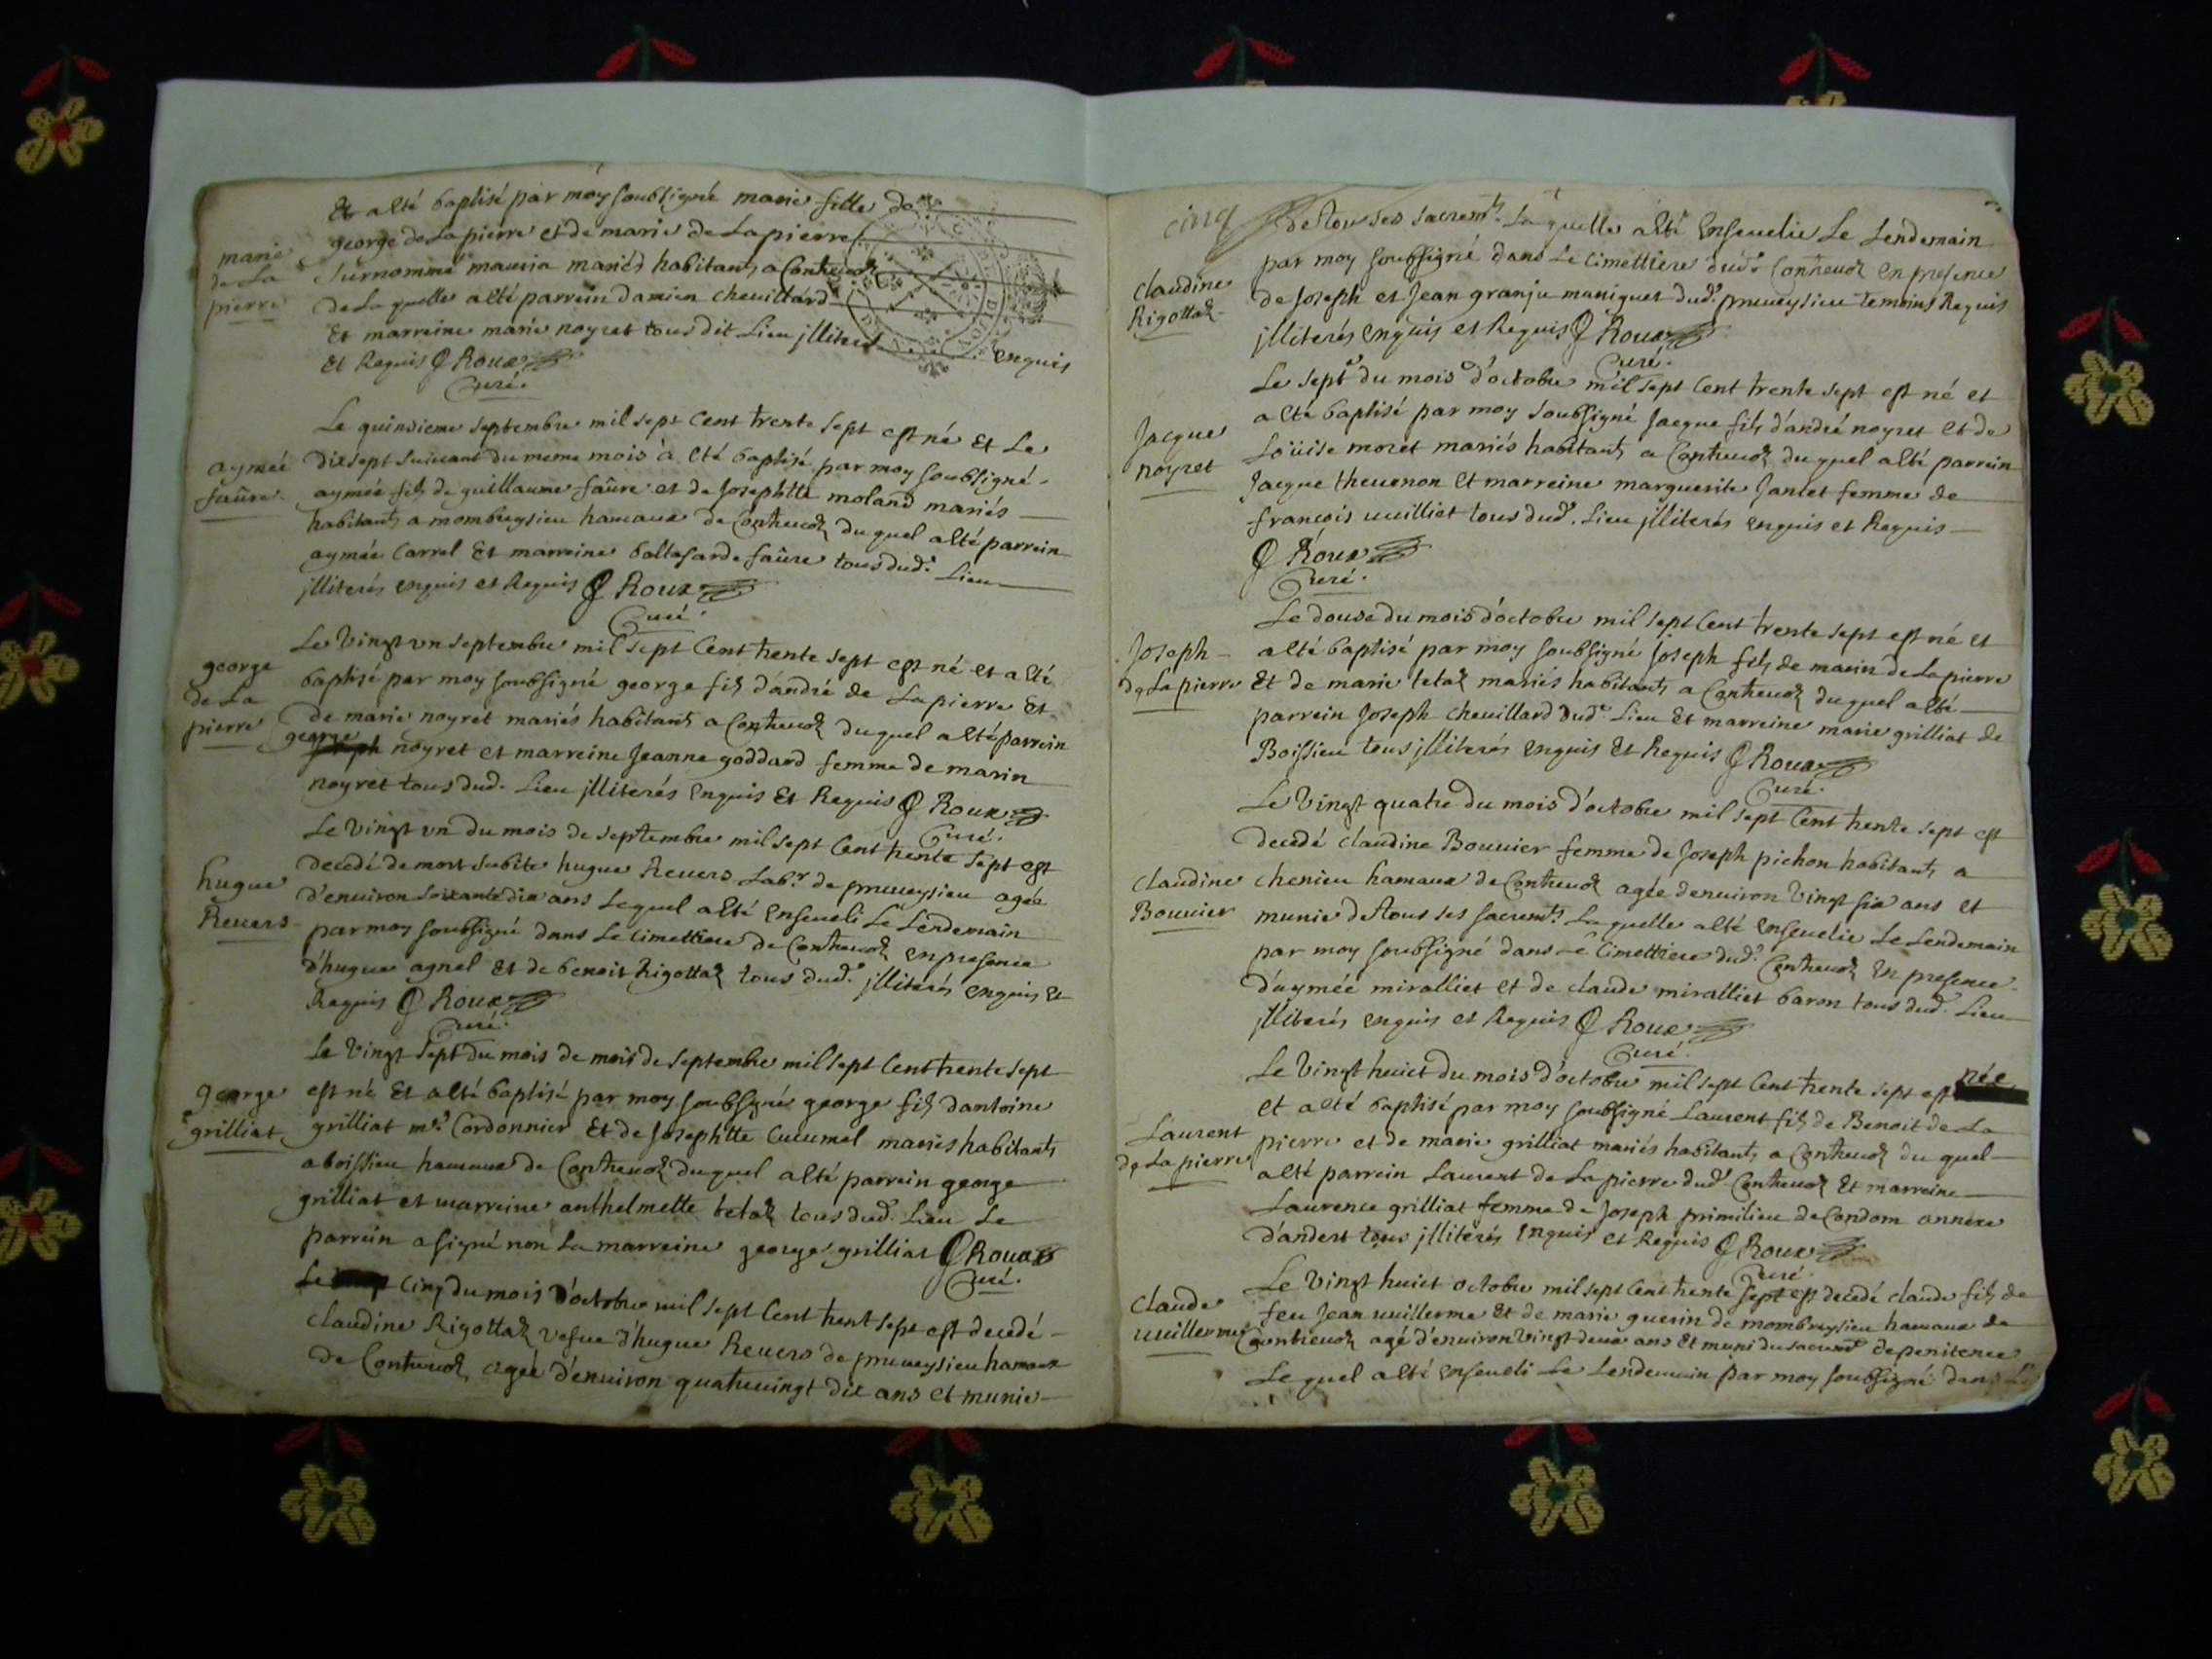 Et a esté baptisé par moy soubsigné marie fille de
marie
de La
pierre
george de La pierre et de marie de La pierre
surnommé mauria mariés habitants a Contrevoz
de La quelle a esté parrein damien chevillard
Et marreine marie noyret tous dit Lieu jlliterés enquis
et Requis Roux
Curé.
aymée
faûre
Le quinsieme septembre mil sept Cent trente sept est né et Le
dixsept suivant du meme mois à esté baptisé par moy soubsigné
aymée fils de guillaume faûre et de Josephtte moland mariés
habitants a mombreysieu hamaux de Contrevoz du quel a esté parrein
aymée Carrel Et marreine baltasarde faûre tous dud. Lieu
jlliterés enquis et Requis Roux
Curé.
george
de La
pierre
Le Vingt vn septembre mil sept Cent trente sept est né et a esté
baptisé par moy soubsigné george fils d'andré de La pierre Et
de marie noyret mariés habitants a Contrevoz du quel a esté parrein
george noyret et marreine Jeanne goddard femme de marin
noyret tous dud. Lieu jlliterés enquis Et Requis Roux
Curé.
hugue
Revers
Le Vingt vn du mois de septembre mil sept Cent trente sept est
decedé de mort subite hugue Revers Lab.r de preveysieu agée
d'environ soixante dix ans Lequel a esté enseveli Le Lendemain
par moy soubsigné dans Le cimettiere de Contrevoz en presence
d'hugue agnel Et de benoit Rigottaz tous dud. jlliterés enquis et
Requis Roux
Curé.
george
grilliat
Le Vingt sept du mois de mois de septembre mil sept Cent trente sept
est né Et a esté baptisé par moy soubsigné george fils d'antoine
grilliat m.e Cordonnier Et de Josephtte Cucumel mariés habitants
a boissieu hamaux de Contrevoz du quel a esté parrein george
grilliat et marreine anthelmette tetaz tous dud. Lieu Le
parrein a signé non La marreine george grilliat Roux
Curé.
Le Cinq du mois d'octobre mil sept Cent trent sept est decedé
claudine Rigottaz vefue d'hugue Revers de preveysieu hamaux
de Contrevoz agée d'environ quatrevingt dix ans et munie
cinq
claudine
Rigottaz
de tous ses sacrem.ts La quelle a esté Ensevelie Le Lendemain
par moy soubsigné dans Le cimettiere dud. Contrevoz en presence
de Joseph et Jean granju maniguet dud. preveysieu temoins Requis
jlliterés enquis et Requis Roux
Curé.
Jacque
noyret
Le sept du mois d'octobre mil sept Cent trente sept est né et
a esté baptisé par moy soubsigné Jacque fils d'andré noyret et de
Loüise moret mariés habitants a Contrevoz du quel a esté parrein
Jacque thevenon et marreine marguerite Jantet femme de
francois vuilliet tous dud. Lieu jlliterés enquis et Requis
Roux
Curé.
Joseph
de La pierre
Le douse du mois d'octobre mil sept Cent trente sept est né et
a esté baptisé par moy soubsigné Joseph fils de marin de La pierre
Et de marie tetaz mariés habitants a Contrevoz du quel a esté
parrein Joseph chevillard dud. Lieu Et marreine marie grilliat de
Boissieu tous jlliterés enquis Et Requis Roux
Curé.
claudine
Bouvier
Le Vingt quatre du mois d'octobre mil sept Cent trente sept est
decedé claudine Bouvier femme de Joseph pichon habitants a
chenieu hamaux de Contrevoz agée d'environ Vingt six ans et
munie de tous ses sacrem.ts La quelle a esté ensevelie Le Lendemain
par moy soubsigné dans Le Cimettiere dud. Contrevoz En presence
d'aymée miralliet et de claude miralliet baron tous dud. Lieu
jlliterés enquis et Requis Roux
Curé.
Laurent
de La pierre
Le Vingt huict du mois d'octobre mil sept Cent trente sept est née
et a esté baptisé par moy soubsigné Laurent fils de Benoit de La
pierre et de marie grilliat mariés habitants a Contrevoz du quel
a esté parrein Laurent de La pierre dud. Contrevoz Et marreine
Laurence grilliat femme de Joseph primilieu de Condom annexe
d'andert tous jlliterés enquis et Requis Roux
Curé.
claude
vuillerme
Le Vingt huict octobre mil sept Cent trente sept est decedé claude fils de
feu Jean vuillerme et de marie guerin de mombreysieu hamaux de
Contrevoz agé d'environ Vingt deux ans Et muni du sacrem.t de penitence
Le quel a esté enseveli Le Lendemain par moy soubsigné dans Le